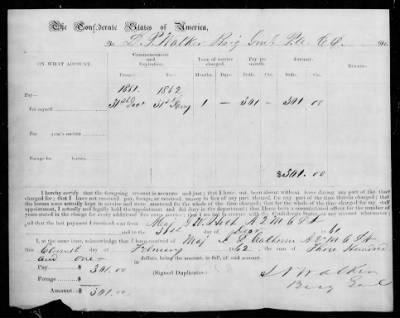 The Confederate States of America,
To L. P. Walker Brig Genl P.A. C.S. Dr.
ON WHAT ACCOUNT.
Commencement and Expiration.
Term of service charged.
Pay per month.
Amount.
Remarks.
From— To— Months. Days. Dolls. Cts. Dolls. Cts.
Pay— 1861. 1862
For myself 31st Dec 31st Jany 1 — 301 — 301 00
year's service
Forage for horses
$301.00
I hereby certify that the foregoing account is accurate and just; that I have not been absent without leave during any part of the time
charged for; that I have not received pay, forage, or received money in lieu of any part thereof, for any part of the time therein charged; that
the horses were actually kept in service and were mustered for the whole of the time charged; that for the whole of the time charged for my staff
appointment, I actually and legally held the appointment and did duty in the department; that I have been a commissioned officer for the number of
years stated in the charge for every additional five years' service; that I am not in arrears with the Confederate States, on any account whatsoever;
and that the last payment I received was from Maj J.
and to the 31st day of
I, at the same time, acknowledge that I have received of Maj
this day of February 62, the sum of Three Hundred
and one — dollars, being the amount, in full, of said account.
Pay— $ 301.00
Forage—
Amount—$ 301.00
(Signed Duplicates)
L P Walker
Brig Genl